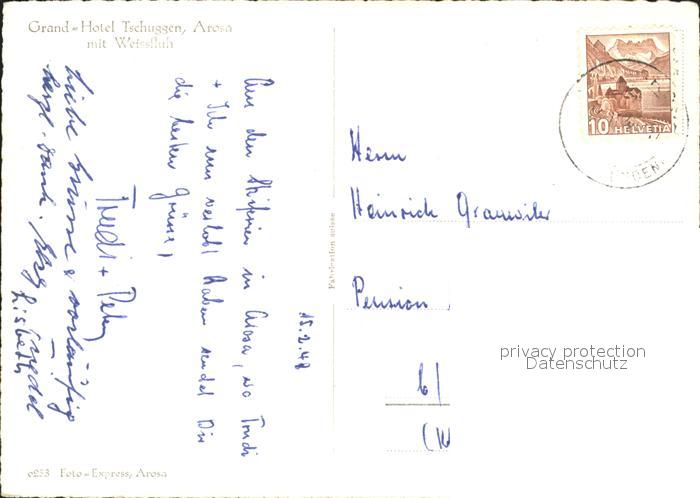 Grand-Hotel Tschuggen, Arosa
mit Weissfluh
15.2.48
Aus den Skiferien in Arosa, wo Trudi
+ Ich uns verlobt haben sendet Dir
die besten Grüsse,
Trudi + Peter
Liebe Grüsse & vorläufig
herzl. Dank.
Lisbeth
Herrn
Heinrich Grauwiler
Pension
b/
10 HELVETIA
Fabrication suisse
privacy protection
Datenschutz
6253 Foto-Express, Arosa